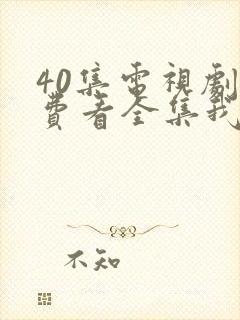 40集電視劇
費看全集我
不知